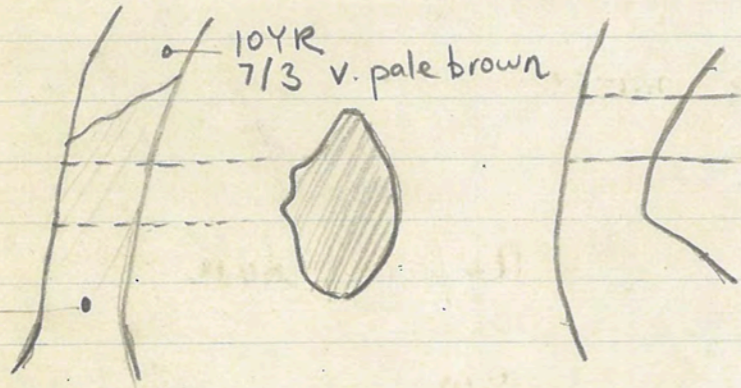 10YR
7/3 v. pale brown